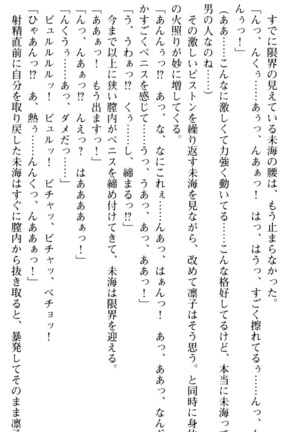 すでに限界の見えている未海の腰は、もう止まらなかった。
「んっ、んくぅ……あぁっ、んあぁっ！　はっ、はうっ、すごく擦れてるぅ……んっ、
んぅっ！」
（ああ……こんなに激しくて力強く動いてる……こんな格好してるけど、本当に未海って
男の人なのね……）
その激しいピストンを繰り返す未海を見ながら、改めて凛子はそう思う。と同時に身体
の火照りが妙に増してくる。
「あんんぅっ⁉　あっ、な、なにこれぇ……んあっ、はぁんっ！　あっ、ああっ、なんだ
かすごくペニスを感じて……うっ、うあっ、あっ、ああっ！」
「う、うわぁっ⁉　くぅ……し、締まるっ⁉」
今まで以上に狭い膣内がペニスを締め付けてきて、未海は限界を迎える。
「ああぁっ！　もう出ますっ！」
「んっ、んあぁっ⁉　んえっ？　はああああぁっ！」
「んくうぅ……あっ、ダメだっ……」
ビュルルルルッ！　ビュルッ！　ビチャッ、ビチャッ、ベチョッ！
「ひゃあんっ⁉　あ、熱ぅ……んんくっ、んああぁっ！」
射精直前に自分を取り戻した未海はすぐに膣内から抜き取ると、暴発してそのまま凛子